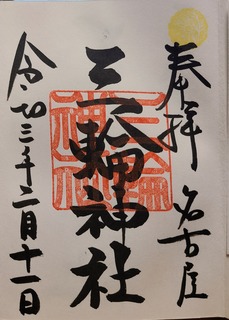 奉拝
名古屋
三輪神社
三輪
神社
令和三年二月十一日